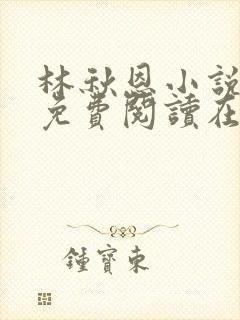 林秋恩小說
免費閱讀在
鍾寶東